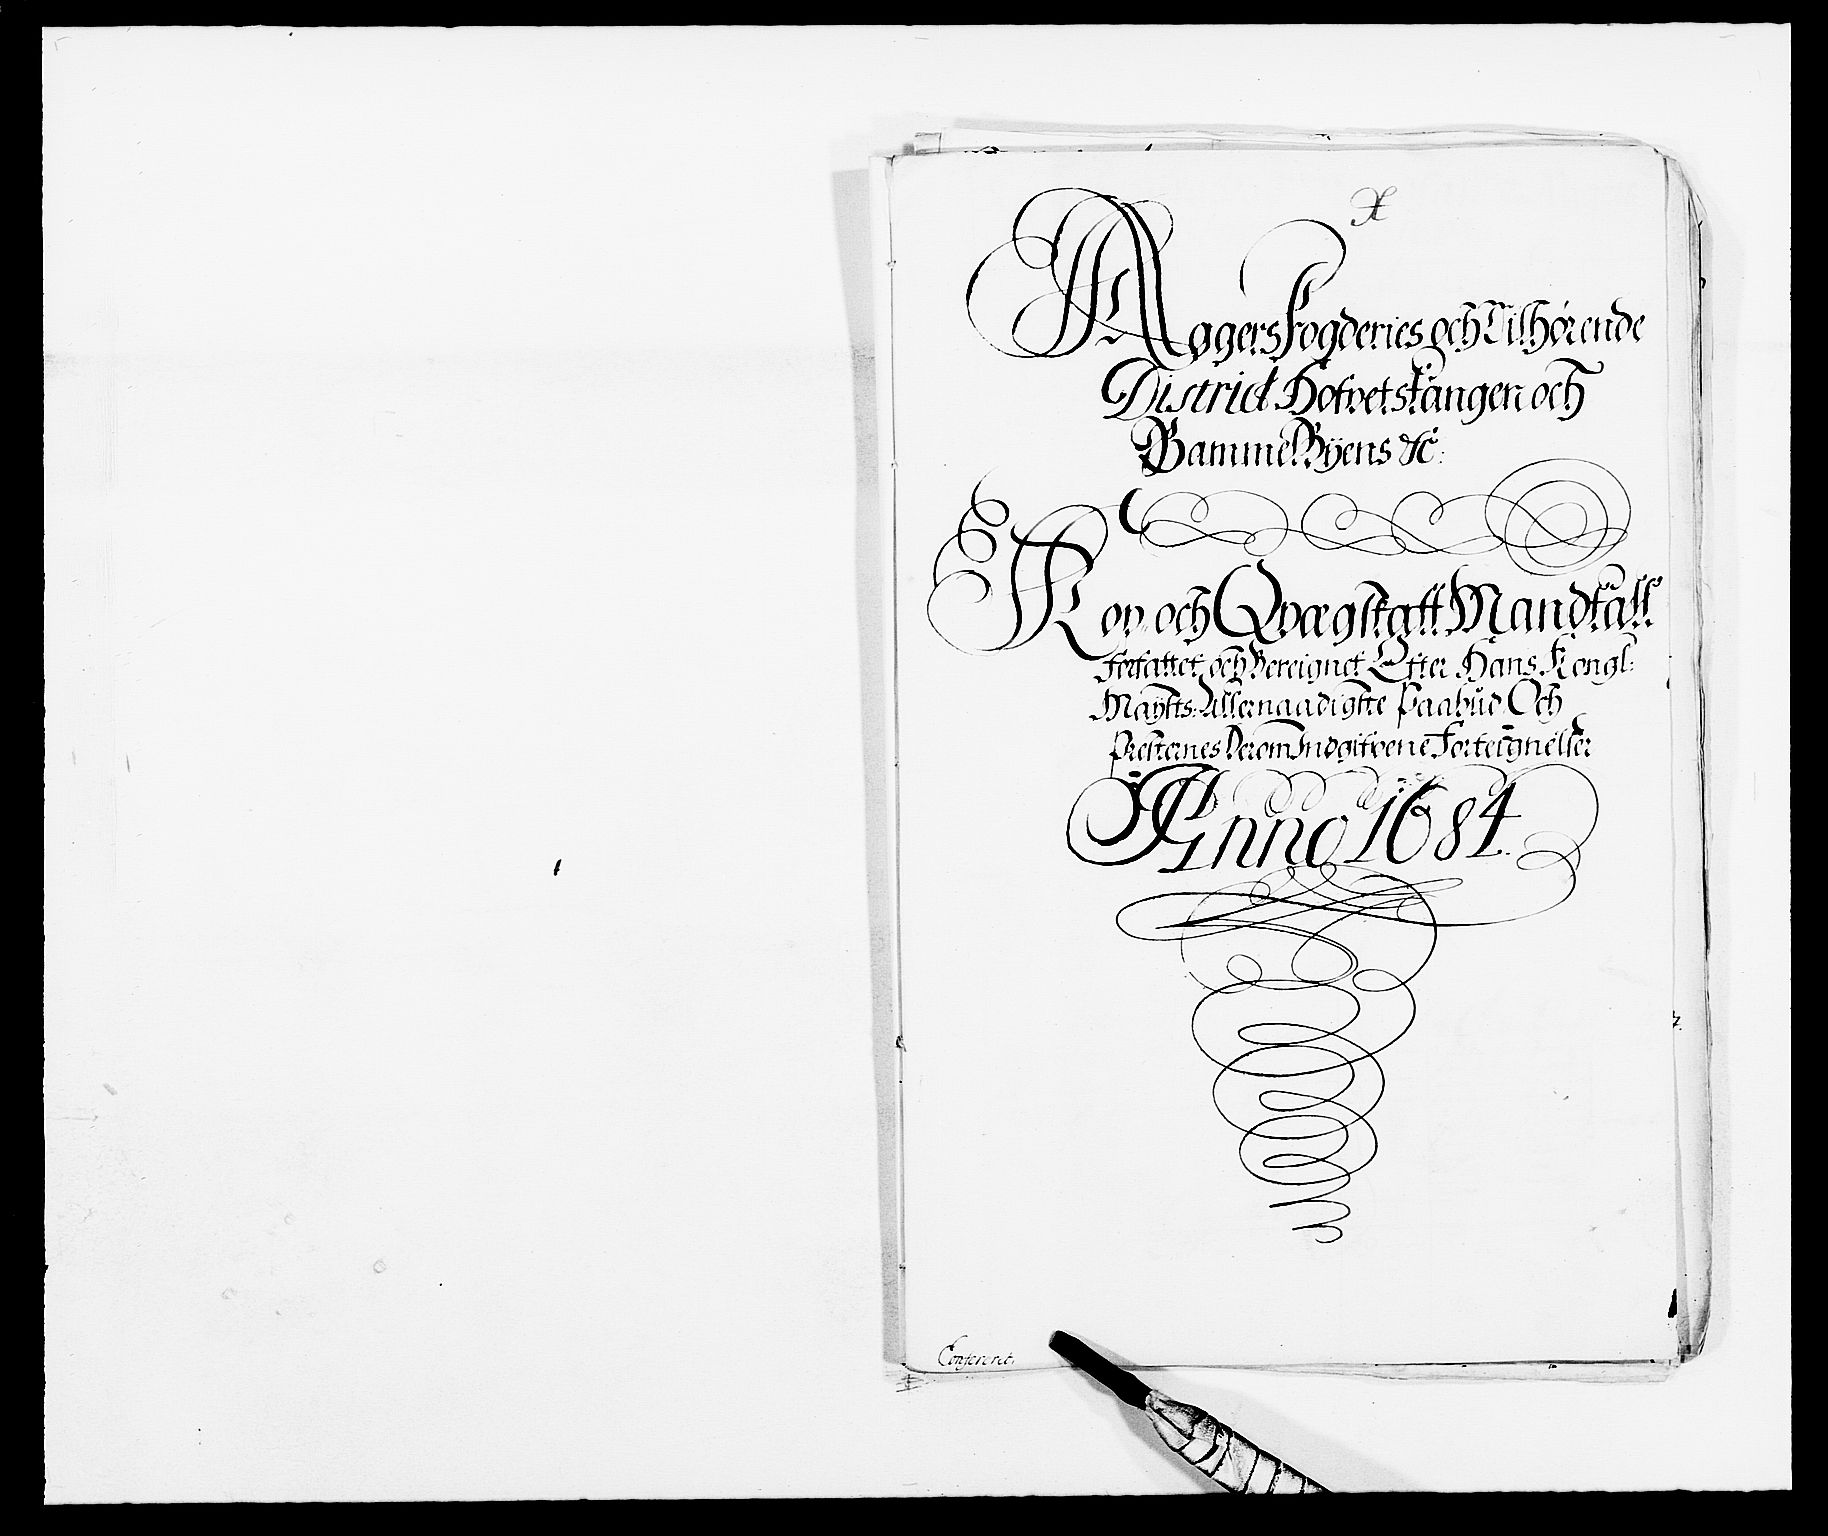 X
Aggers Fogderies och Tilhørende
District Hofvetstangen och
Gammel Byens &c:
Kop och Qvægskatt Mandtall
Forfattet och Bereignet Efter Hans Kongl:
Mayt:ts Allernaadigste Paabud Och
Presternes Derom Indgifvene Forteignelser
Anno 1684.
Confereret.